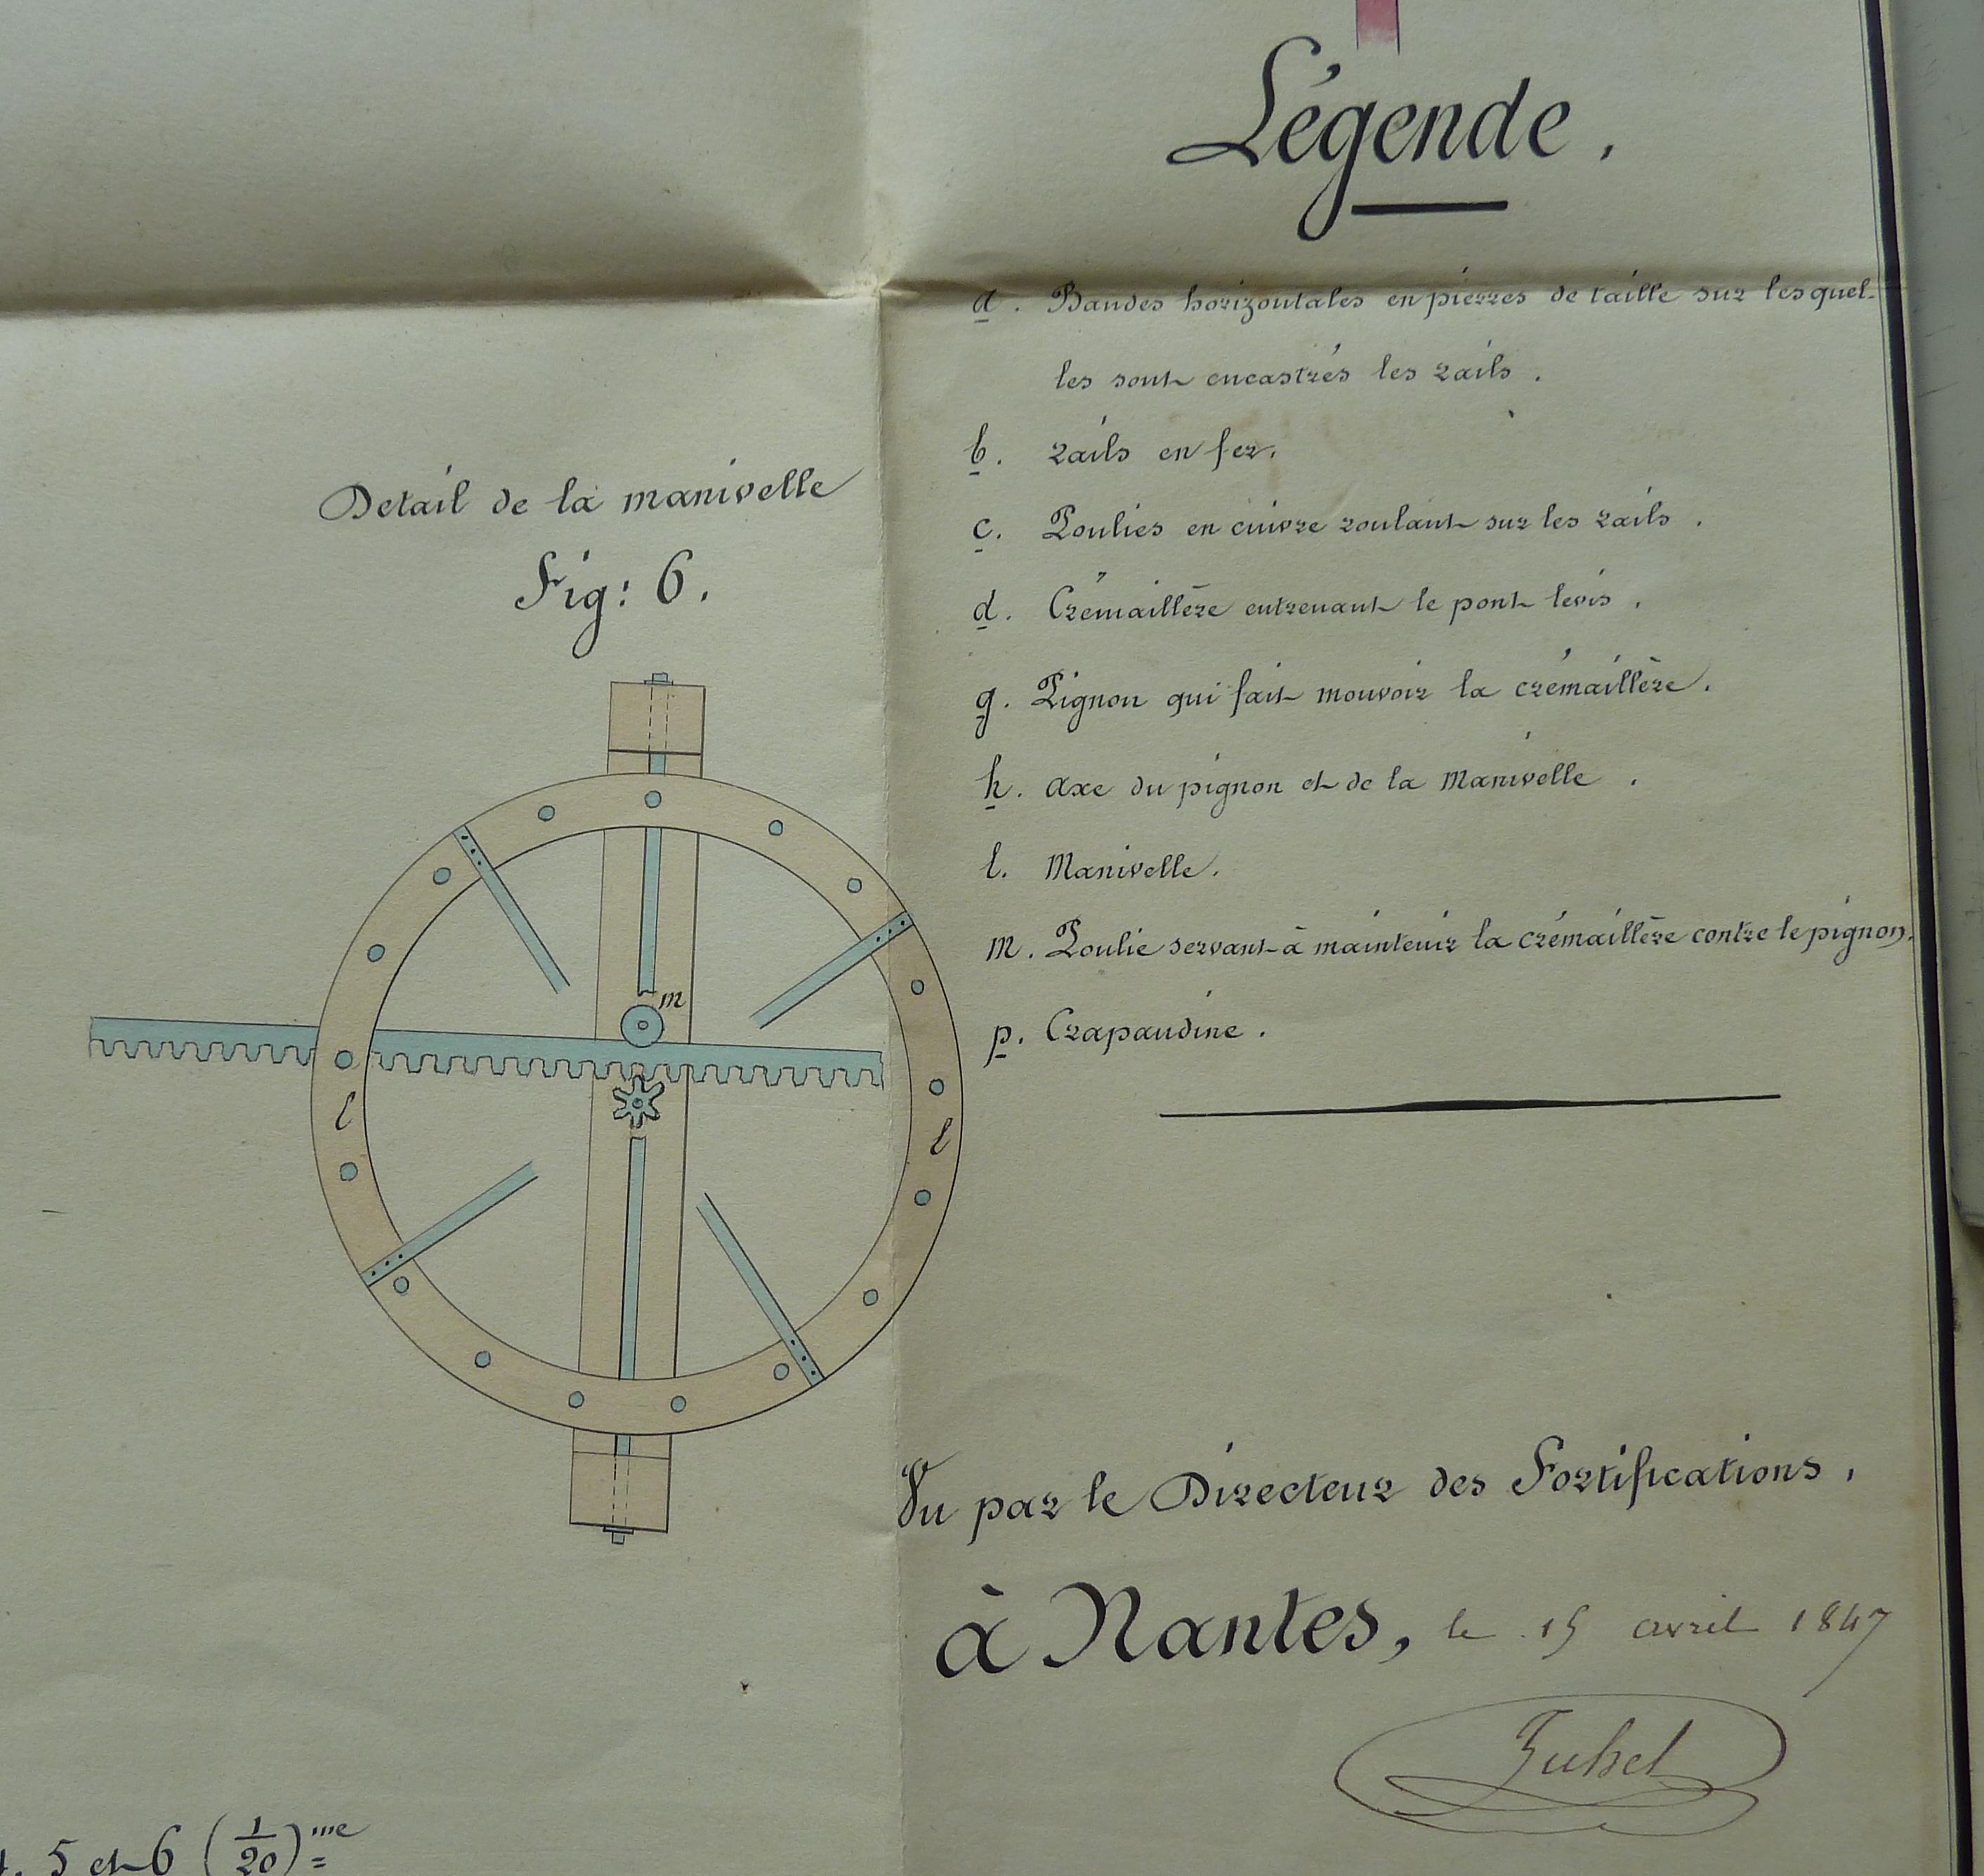 Légende.
a. Bandes horizontales en pierres de taille sur lesquel-
les sont encastrés les rails.
b. rails en fer.
c. Poulies en cuivre roulant sur les rails.
d. Crémaillère entrenant le pont levis.
g. Pignon qui fait mouvoir la crémaillère.
h. axe du pignon et de la Manivelle.
l. Manivelle.
m. Poulie servant à maintenir la crémaillère contre le pignon.
p. Crapaudine.
Detail de la manivelle
Fig: 6.
m
l
l
Vu par le Directeur des Fortifications,
à Nantes, le 15 avril 1847
5 et 6 (1/20)me